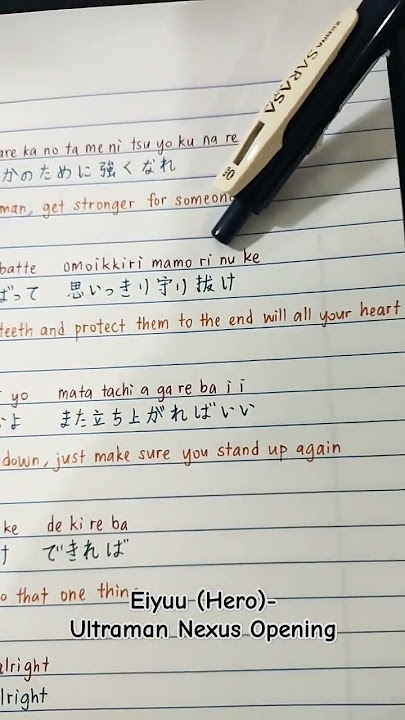 ZEBRA SARASA
0.5
are ka no ta me ni tsu yo ku na re
かのために強くなれ
man, get stronger for someone
batte omoikkiri mamo ri nu ke
ばって 思いっきり守り抜け
teeth and protect them to the end will all your heart
yo mata tachi a ga re ba i i
よ また立ち上がればいい
down, just make sure you stand up again
ke de ki re ba
け できれば
o that one thin
Eiyuu (Hero)-
Ultraman Nexus Opening
alright
lright